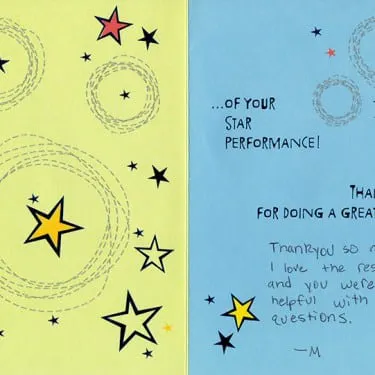 ...OF YOUR
STAR
PERFORMANCE!
FOR DOING A GREAT
Thankyou so
I love the
and you were
helpful with
questions.
—M